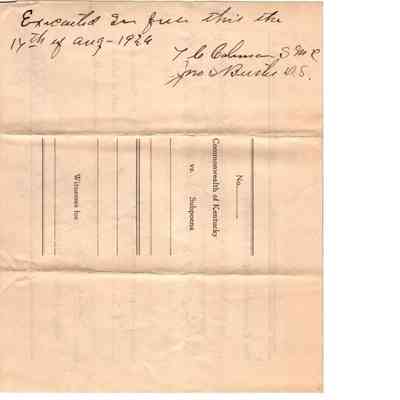 Executed in full this the
17th of Aug-1924
T C Coleman, S M C
Jno S Butler D.S.
No.
Commonwealth of Kentucky
vs. Subpoena
Witnesses for